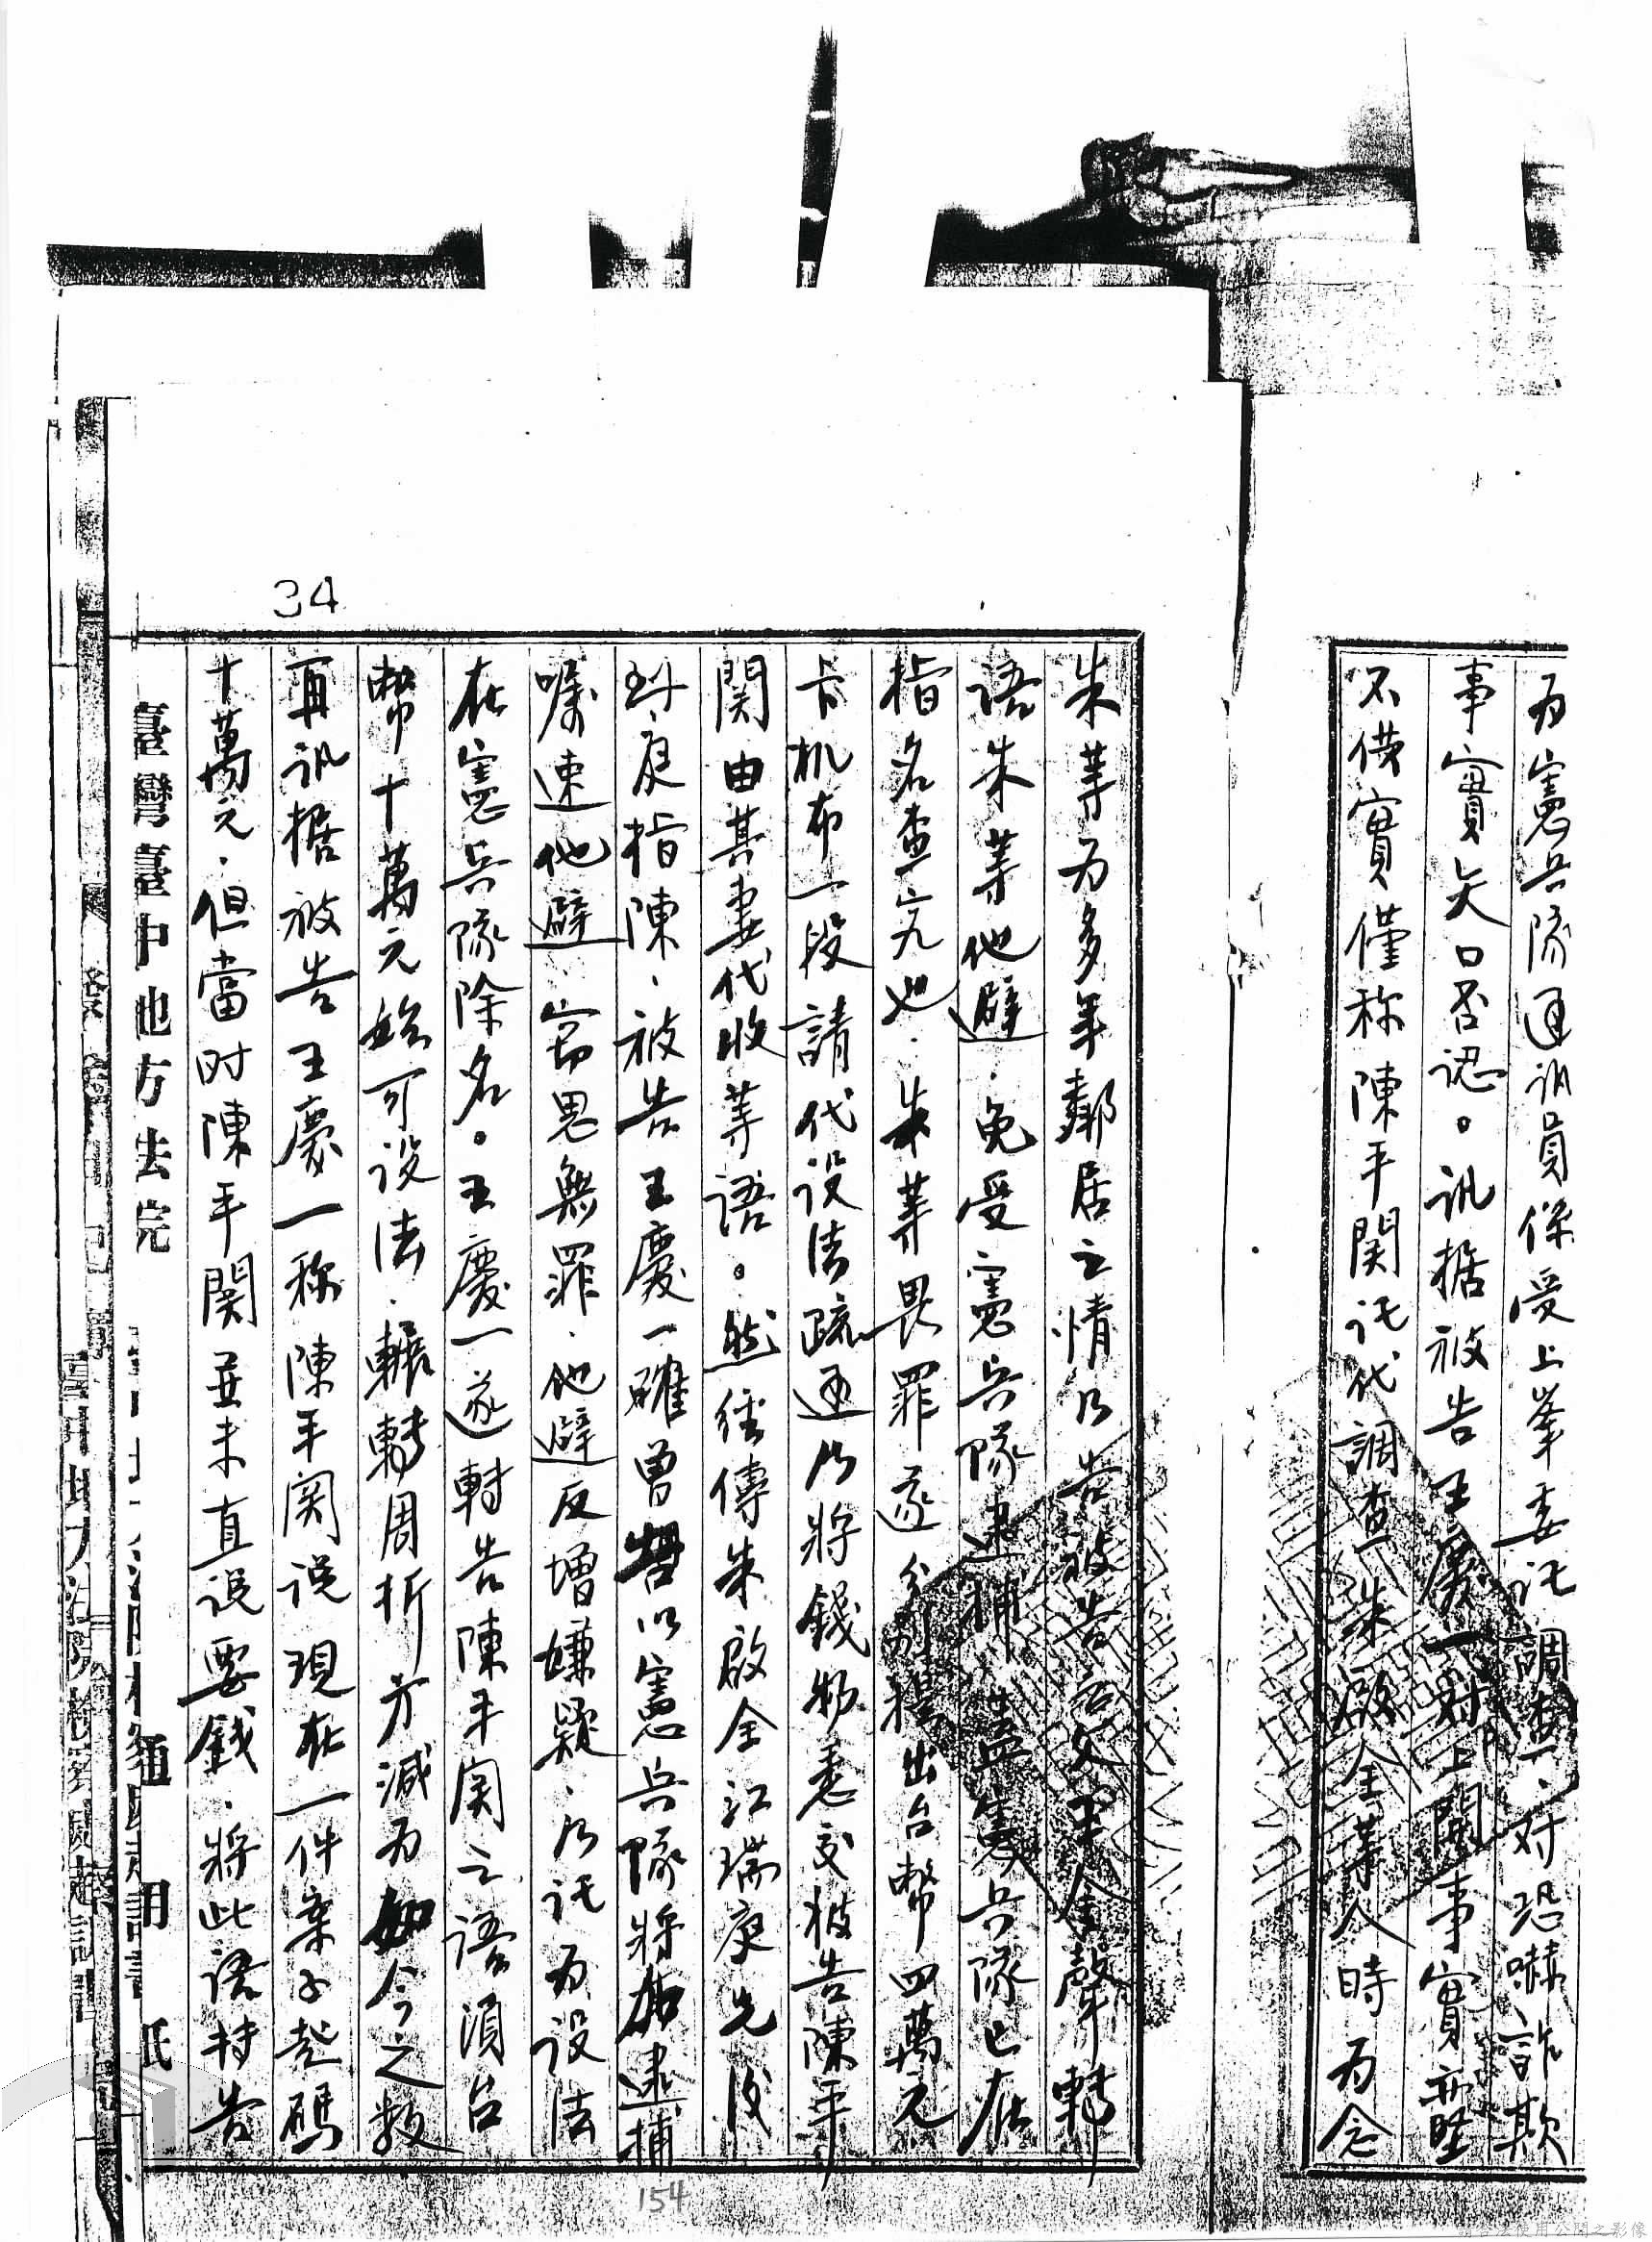 為憲兵隊通訊員係受上峯委託調查、对恐嚇詐欺
事實矢口否認。訊据被告王慶一对上開事實堅
不供實僅称陳平関託代調查朱啟全等人時為念
34
朱等为多年鄰居之情乃告被告之父王金聲轉
語朱等他避、免受憲兵隊逮捕、蓋憲兵隊已在
指名查究也、朱等畏罪遂分別攜出台幣四萬元
卡机布一段請代设法疏通乃將錢物悉交被告陳平
関由其妻代收等語。然経傳朱啟全江瑞庭先後
到庭指陳、被告王慶一確曾以憲兵隊將逮捕
嘱速他避、當思無罪、他避反增嫌疑、乃託为设法
在憲兵隊除名。王慶一遂轉告陳平関之语須台
幣十萬元始可设法、輾轉周折方減为如今之数
再訊据被告王慶一称陳平関说現在一件案子起碼
十萬元、但當时陳平関並未直说要錢、將此语持告
臺灣臺中地方法院 通用紙
154
請合法使用公開之影像